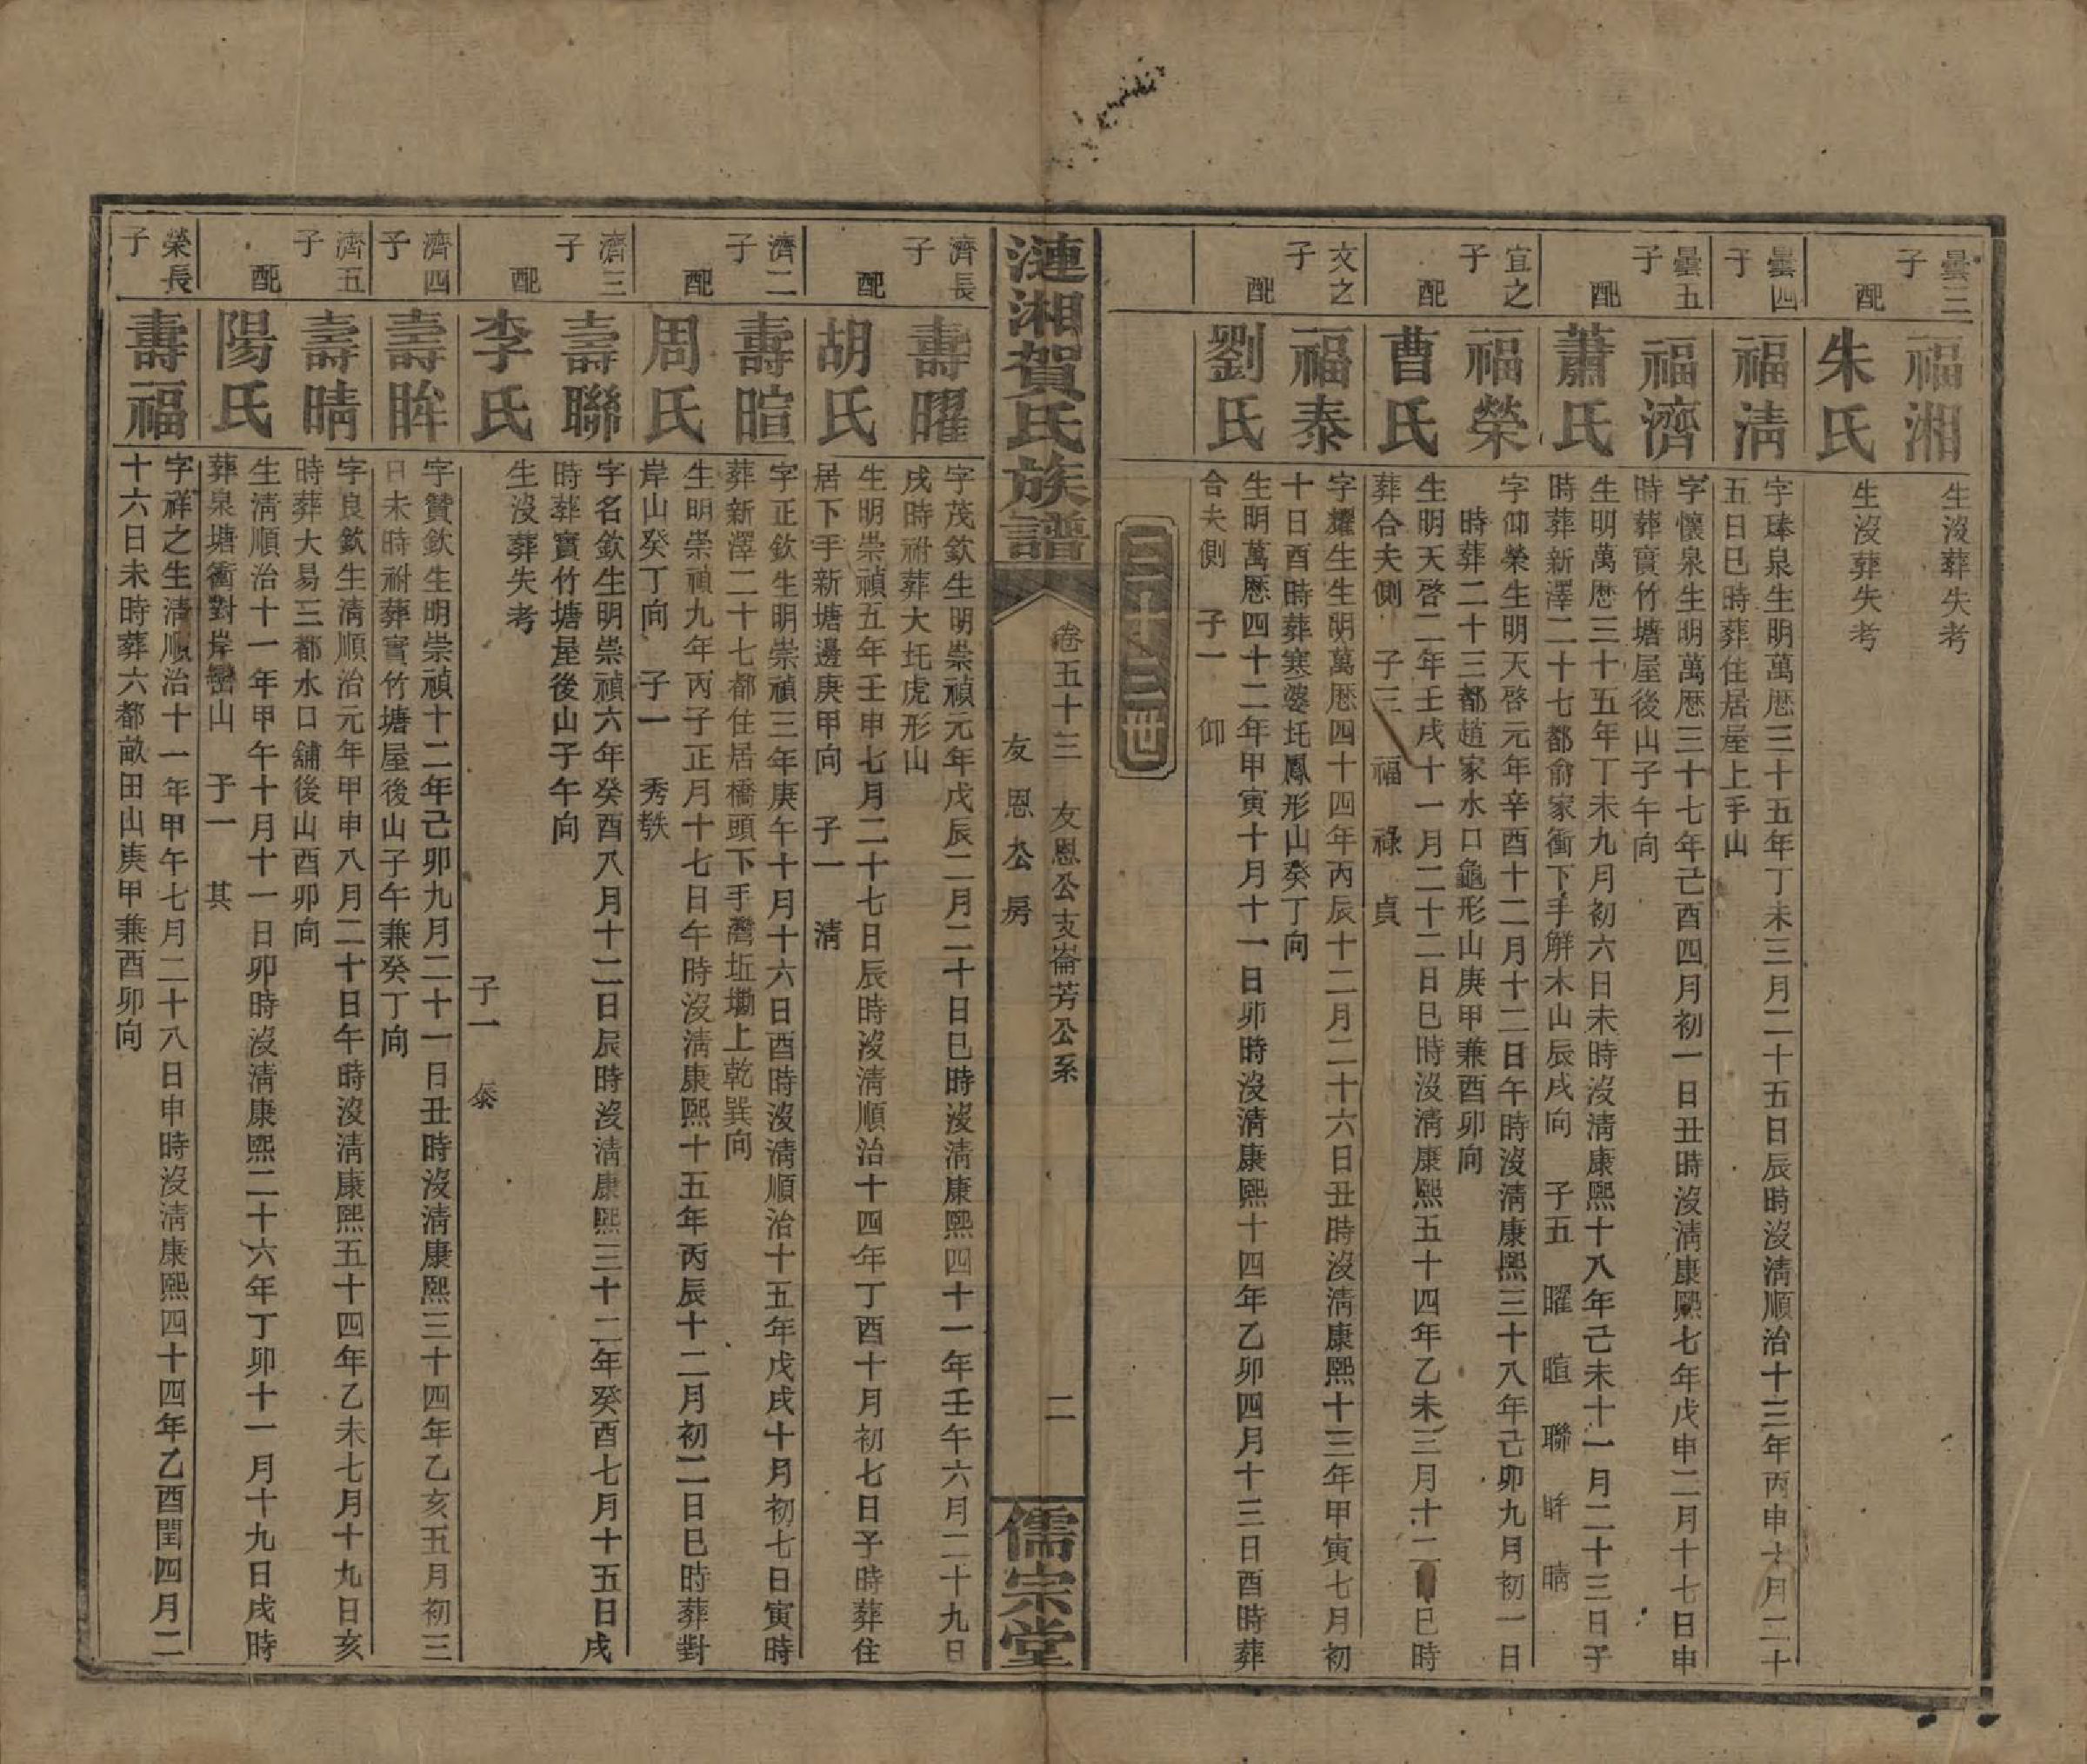 曇三子
福湘
生沒葬失考
配
朱氏
生沒葬失考
曇四子
福清
字琫泉生明萬厯三十五年丁未三月二十五日辰時沒淸順治十三年丙申十月二十
五日巳時葬住居屋上手山
曇五子
福濟
字懷泉生明萬厯三十七年己酉四月初一日丑時沒淸康熙七年戊申二月十七日申
時葬實竹塘屋後山子午向
配
蕭氏
生明萬厯三十五年丁未九月初六日未時沒淸康熙十八年己未十一月二十三日子
時葬新澤二十七都俞家衝下手觧木山辰戌向 子五 曜 暄 聯 眸 晴
宜之子
福榮
字仰榮生明天啓元年辛酉十二月十二日午時沒淸康熙三十八年己卯九月初一日
時葬二十三都趙家水口龜形山庚甲兼酉卯向
配
曹氏
生明天啓二年壬戌十一月二十二日巳時沒淸康熙五十四年乙未三月十二日巳時
葬合夫側 子三 福 祿 貞
文之子
福泰
字耀生生明萬厯四十四年丙辰十二月二十六日丑時沒淸康熙十三年甲寅七月初
十日酉時葬寒婆圫鳳形山癸丁向
配
劉氏
生明萬厯四十二年甲寅十月十一日卯時沒淸康熙十四年乙卯四月十三日酉時葬
合夫側 子一 仰
三十三世
漣湘賀氏族譜
卷五十三 友恩公支崙芳公系
友恩公房
二
儒宗堂
濟長子
壽曜
字茂欽生明崇禎元年戊辰二月二十日巳時沒淸康熙四十一年壬午六月二十九日
戌時祔葬大圫虎形山
配
胡氏
生明崇禎五年壬申七月二十七日辰時沒淸順治十四年丁酉十月初七日子時葬住
居下手新塘邊庚甲向 子一 淸
濟二子
壽暄
字正欽生明崇禎三年庚午十月十六日酉時沒淸順治十五年戊戌十月初七日寅時
葬新澤二十七都住居橋頭下手灣坵墈上乾巽向
配
周氏
生明崇禎九年丙子正月十七日午時沒淸康熙十五年丙辰十二月初二日巳時葬對
岸山癸丁向 子一 秀
濟三子
壽聯
字名欽生明崇禎六年癸酉八月十二日辰時沒淸康熙三十二年癸酉七月十五日戌
時葬實竹塘屋後山子午向
配
李氏
生沒葬失考
子一 泰
濟四子
壽眸
字贊欽生明崇禎十二年己卯九月二十一日丑時沒淸康熙三十四年乙亥五月初三
日未時祔葬實竹塘屋後山子午兼癸丁向
濟五子
壽晴
字良欽生淸順治元年甲申八月二十日午時沒淸康熙五十四年乙未七月十九日亥
時葬大易三都水口舖後山酉卯向
配
陽氏
生淸順治十一年甲午十月十一日卯時沒淸康熙二十六年丁卯十一月十九日戌時
葬泉塘衝對岸巒山 子一 其
榮長子
壽福
字祥之生淸順治十一年甲午七月二十八日申時沒淸康熙四十四年乙酉閏四月二
十六日未時葬六都畝田山庚甲兼酉卯向